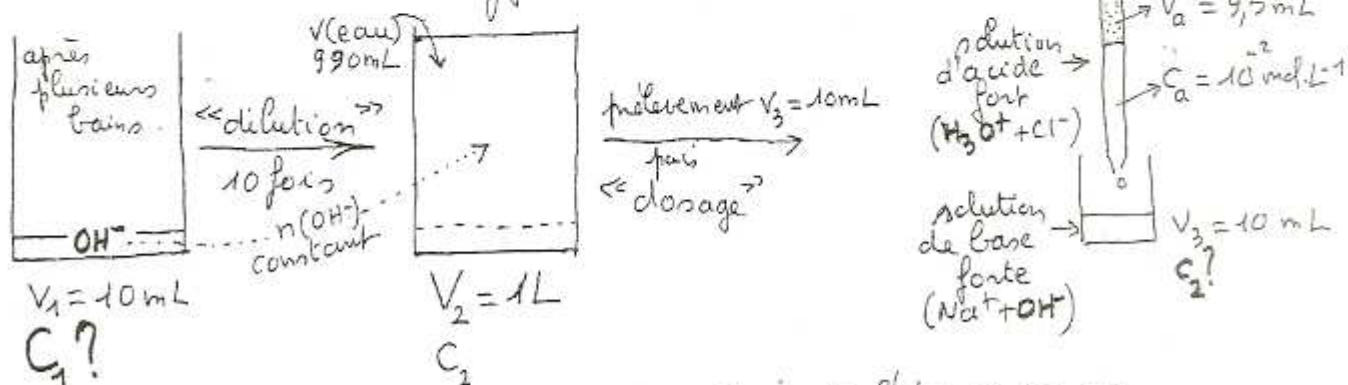 après
plusieurs
bains.
OH⁻
V₁ = 10 mL
C₁?
<<dilution>>
10 fois
n(OH⁻)
constant
V(eau)
990mL
V₂ = 1L
C₂
prélèvement V₃ = 10mL
puis
<<dosage>>
solution
d'acide
fort
(H₃O⁺ + Cl⁻)
Va = 9,5 mL
Ca = 10⁻² mol.L⁻¹
solution
de base
forte
(Na⁺ + OH⁻)
V₃ = 10 mL
C₂?